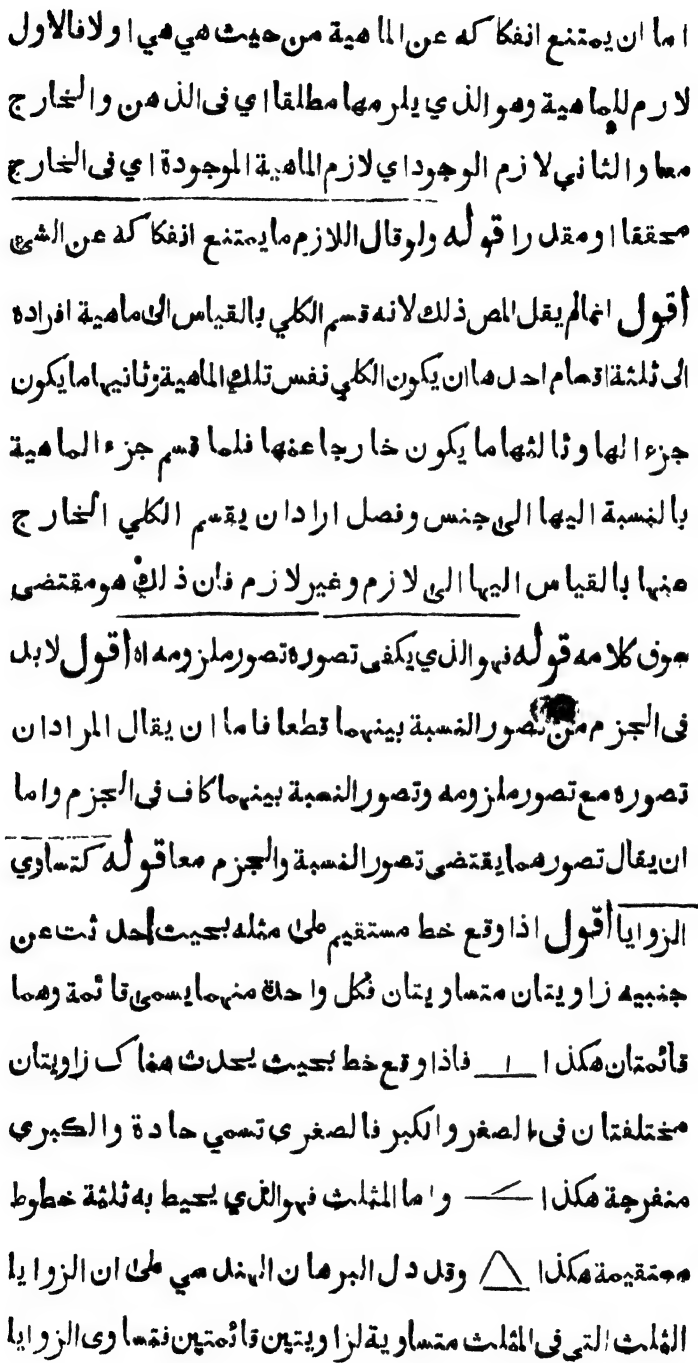 اما ان يمتنع انفكاكه عن الماهية من حيث هي هي اولا فالاول
لازم للماهية وهو الذي يلزمها مطلقا اي فى الذهن والخارج
معا والثاني لازم الوجود اي لازم الماهية الموجودة اي فى الخارج
محققا او مقدرا قوله ولو قال اللازم ما يمتنع انفكاكه عن الشئ
أقول انما لم يقل المص ذلك لانه قسم الكلي بالقياس الى ماهية افراده
الى ثلثة اقسام احدها ان يكون الكلي نفس تلك الماهية وثانيها ما يكون
جزءا لها وثالثها ما يكون خارجا عنها فلما قسم جزء الماهية
بالنسبة اليها الى جنس وفصل اراد ان يقسم الكلي الخارج
عنها بالقياس اليها الى لازم وغير لازم فان ذلك هو مقتضى
سوق كلامه قوله فهو الذي يكفى تصوره تصور ملزومه اه أقول لابد
فى الجزم من تصور النسبة بينهما قطعا فاما ان يقال المراد ان
تصوره مع تصور ملزومه وتصور النسبة بينهما كاف فى الجزم واما
ان يقال تصورهما يقتضى تصور النسبة والجزم معا قوله كتساوي
الزوايا أقول اذا وقع خط مستقيم على مثله بحيث احدثت عن
جنبيه زاويتان متساويتان فكل واحدة منهما يسمى قائمة وهما
قائمتان هكذا فاذا وقع خط بحيث يحدث هناك زاويتان
مختلفتان فى الصغر والكبر فالصغرى تسمي حادة والكبرى
منفرجة هكذا واما المثلث فهو الذي يحيط به ثلثة خطوط
مستقيمة هكذا وقد دل البرهان الهندسي على ان الزوايا
الثلث التي فى المثلث متساوية لزاويتين قائمتين فتساوى الزوايا